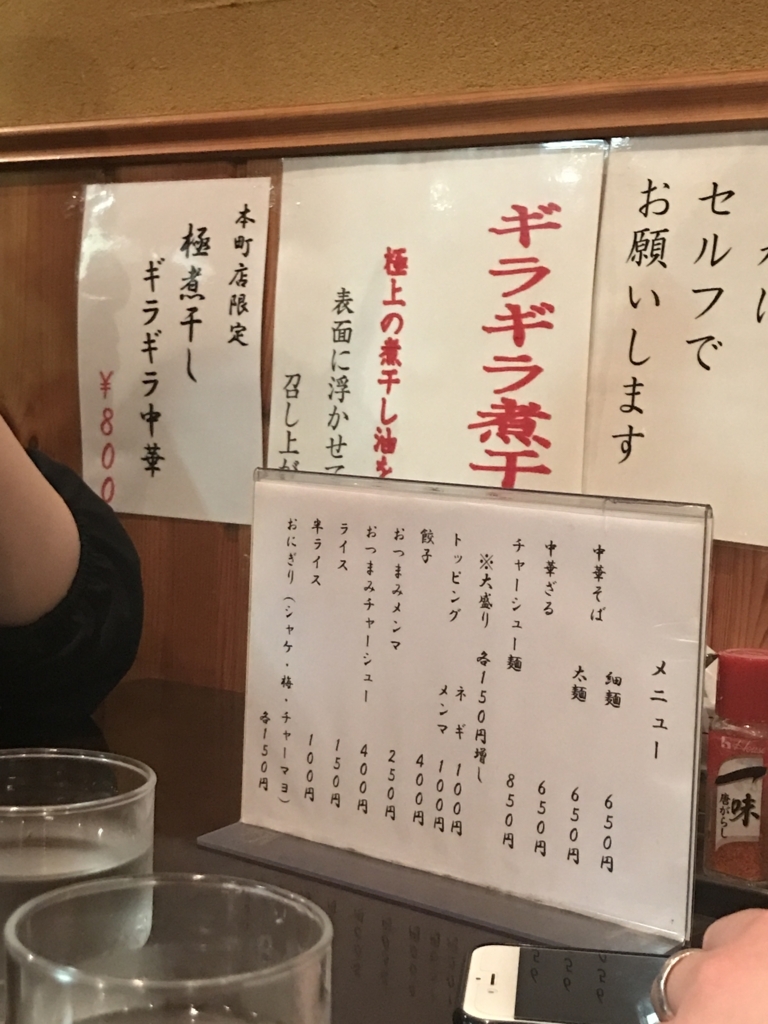 セルフで
お願いします
ギラギラ煮干
極上の煮干し油を
表面に浮かせて
召し上が
本町店限定
極煮干し
ギラギラ中華
¥800
メニュー
中華そば 細麺 650円
太麺 650円
中華ざる 650円
チャーシュー麺 850円
※大盛り 各150円増し
トッピング ネギ 100円
メンマ 100円
餃子 400円
おつまみメンマ 250円
おつまみチャーシュー 400円
ライス 150円
半ライス 100円
おにぎり(シャケ・梅・チャーマヨ) 各150円
House
一味
唐がらし